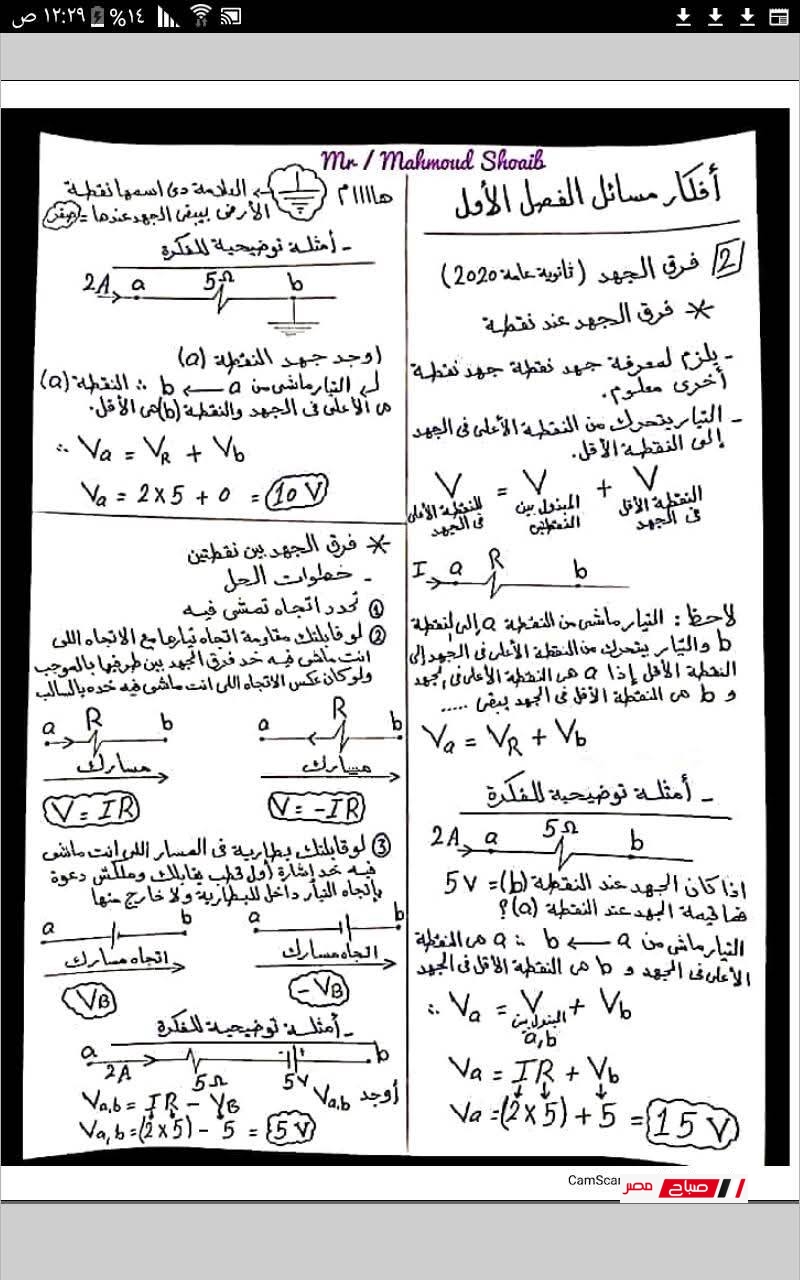 ١٢:٢٩ ص
%١٤
Mr / Mahmoud Shoaib
أفكار مسائل الفصل الأول
2 فرق الجهد (ثانوية عامة 2020)
* فرق الجهد عند نقطة
- يلزم لمعرفة جهد نقطة جهد نقطة
أخرى معلوم.
- التيار يتحرك من النقطة الأعلى فى الجهد
إلى النقطة الأقل.
V = V + V
للنقطة الأعلى فى الجهد
المبذول بين النقطتين
النقطة الأقل فى الجهد
I a R b
لاحظ: التيار ماشى من النقطة a إلى النقطة
b والتيار يتحرك من النقطة الأعلى فى الجهد إلى
النقطة الأقل إذا a هى النقطة الأعلى فى الجهد
و b هى النقطة الأقل فى الجهد يبقى .....
Va = VR + Vb
- أمثلة توضيحية للفكرة
2A a 5Ω b
اذا كان الجهد عند النقطة (b) = 5V
فما قيمة الجهد عند النقطة (a)؟
التيار ماشى من a ← b ∴ a هى النقطة
الأعلى فى الجهد و b هى النقطة الأقل فى الجهد
∴ Va = V + Vb
المبذول بين
a,b
Va = IR + Vb
Va = (2×5) + 5 = 15 V
هااااام
← العلامة دى اسمها نقطة
الأرضى يبقى الجهد عندها = صفر
- أمثلة توضيحية للفكرة
2A a 5Ω b
اوجد جهد النقطة (a)
التيار ماشى من a ← b ∴ النقطة (a)
هى الأعلى فى الجهد والنقطة (b) هى الأقل.
∴ Va = VR + Vb
Va = 2×5 + 0 = 10 V
* فرق الجهد بين نقطتين
- خطوات الحل
① تحدد اتجاه تمشى فيه
② لو قابلتك مقاومة اتجاه تيارها مع الاتجاه اللى
انت ماشى فيه خد فرق الجهد بين طرفيها بالموجب
ولو كان عكس الاتجاه اللى انت ماشى فيه خده بالسالب
a R b
a R b
مسارك
مسارك
V = IR
V = -IR
③ لو قابلتك بطارية فى المسار اللى انت ماشى
فيه خد إشارة أول قطب يقابلك وملكش دعوة
بإتجاه التيار داخل للبطارية ولا خارج منها
a b
a b
اتجاه مسارك
اتجاه مسارك
VB
-VB
- أمثلة توضيحية للفكرة
a 2A 5Ω 5V b
أوجد Va,b
Va,b = IR - VB
Va,b = (2×5) - 5 = 5V
CamScan
صباح مصر